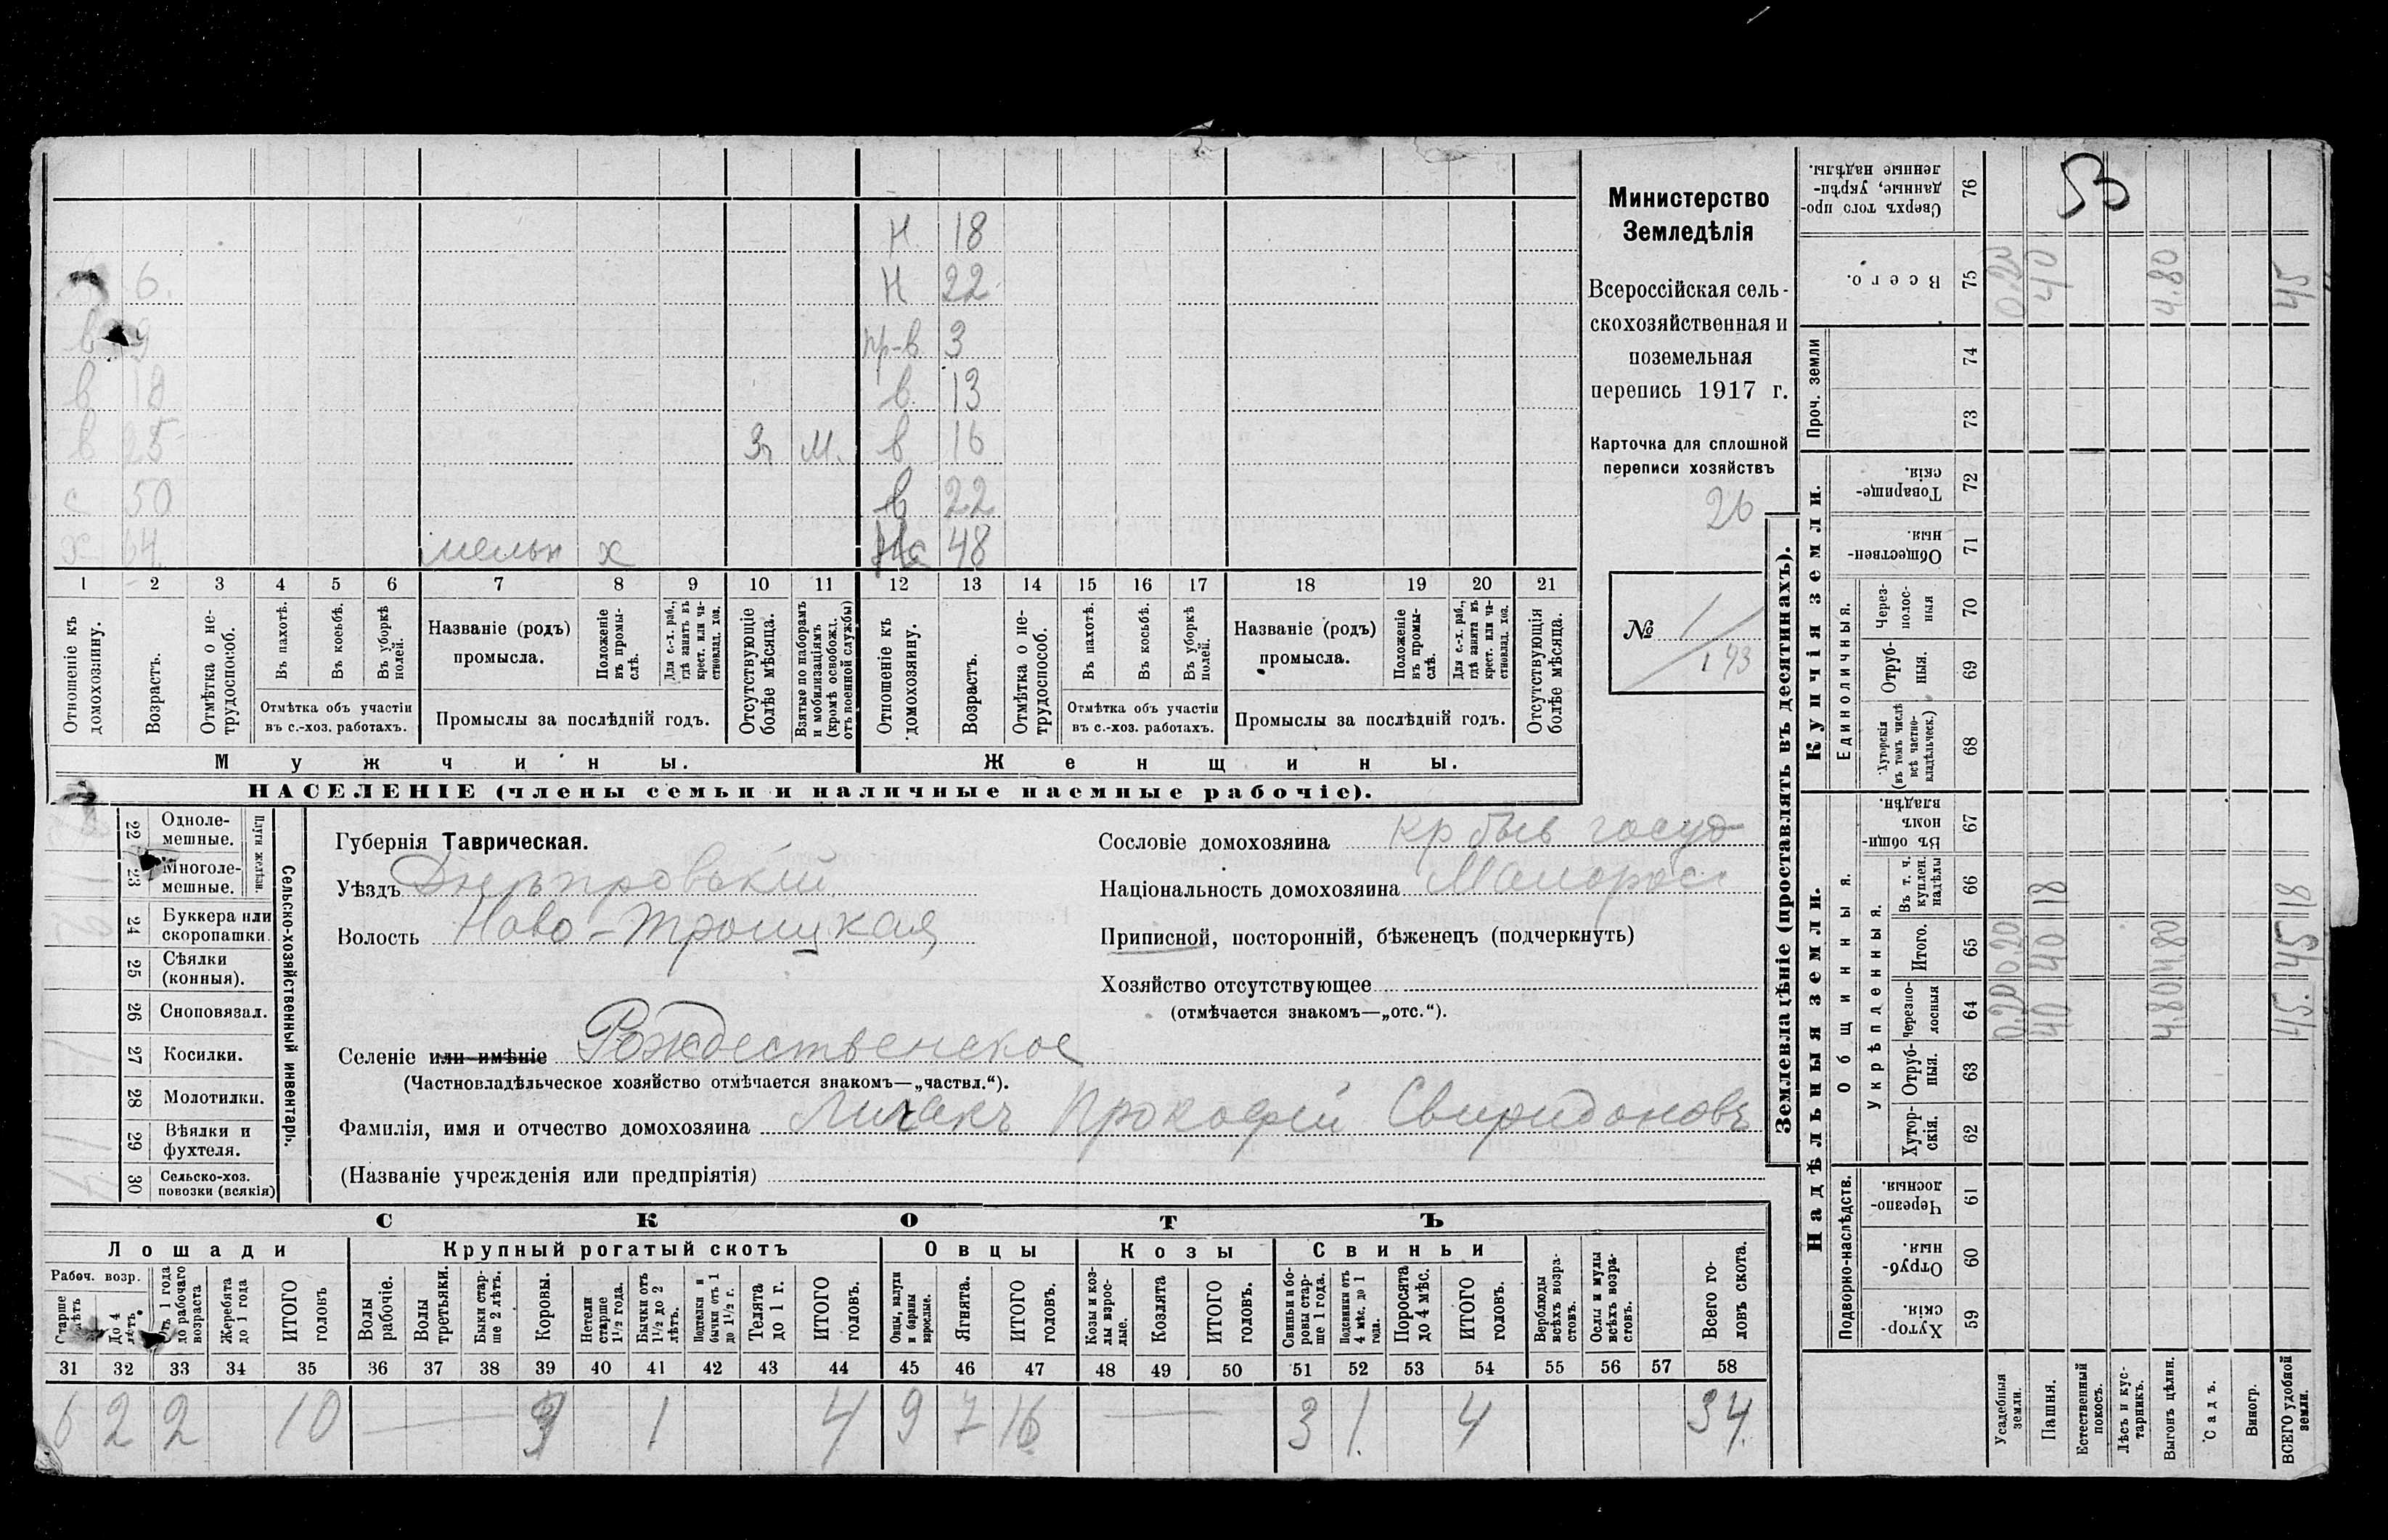 Н 18
6. Н 22
в 9 пр-в 3
в 18 в. 13
в 25 Зп М. в 16
с 50 в 22
х 64 мельн х 48
1 2 3 4 5 6 7 8 9 10 11 12 13 14 15 16 17 18 19 20 21
Отношеніе къ домохозяину.
Возрастъ.
Отмѣтка о не-трудоспособ.
Въ пахотѣ.
Въ косьбѣ.
Въ уборкѣ полей.
Отмѣтка объ участіи въ с.-хоз. работахъ.
Названіе (родъ) промысла.
Положеніе въ промы-слѣ.
Для с.-х. раб., гдѣ занятъ въ крест. или ча-стновлад. хоз.
Промыслы за послѣдній годъ.
Отсутствующіе болѣе мѣсяца.
Взятые по наборамъ и мобилизаціямъ (кромѣ освобожд. отъ военной службы)
Отношеніе къ домохозяину.
Возрастъ.
Отмѣтка о не-трудоспособ.
Въ пахотѣ.
Въ косьбѣ.
Въ уборкѣ полей.
Отмѣтка объ участіи въ с.-хоз. работахъ.
Названіе (родъ) промысла.
Положеніе въ промы-слѣ.
Для с.-х. раб., гдѣ занята въ крест. или ча-стновлад. хоз.
Промыслы за послѣдній годъ.
Отсутствующія болѣе мѣсяца.
Мужчины. Женщины.
НАСЕЛЕНІЕ (члены семьи и наличные наемные рабочіе).
Министерство
Земледѣлія
Всероссійская сель-
скохозяйственная и
поземельная
перепись 1917 г.
Карточка для сплошной
переписи хозяйствъ
26
№ 1/193
22 Одноле-мешные.
23 Многоле-мешные.
Плуги желѣзн.
24 Буккера или скоропашки.
25 Сѣялки (конныя).
26 Сноповязал.
27 Косилки.
28 Молотилки.
29 Вѣялки и фухтеля.
30 Сельско-хоз. повозки (всякія)
Сельско-хозяйственный инвентарь.
Губернія Таврическая.
Уѣздъ Днѣпровскій
Волость Ново-Троицкая
Селеніе или имѣніе Рождественское
(Частновладѣльческое хозяйство отмѣчается знакомъ—„частвл.“).
Фамилія, имя и отчество домохозяина Личакъ Прокофій Свиридоновъ
(Названіе учрежденія или предпріятія)
Сословіе домохозяина кр быв госуд
Національность домохозяина Малорос
Приписной, посторонній, бѣженецъ (подчеркнуть)
Хозяйство отсутствующее
(отмѣчается знакомъ—„отс.“).
СКОТЪ
Лошади Крупный рогатый скотъ Овцы Козы Свиньи
Рабоч. возр.
Старше лѣтъ
До 4 лѣтъ.
Отъ 1 года до рабочаго возраста
Жеребята до 1 года
ИТОГО головъ
Волы рабочіе.
Волы третьяки.
Быки стар-ше 2 лѣтъ.
Коровы.
Нетели старше 1½ года.
Бычки отъ 1½ до 2 лѣтъ.
Подтелки и бычки отъ 1 до 1½ г.
Телята до 1 г.
ИТОГО головъ.
Овцы, валухи и бараны взрослые.
Ягнята.
ИТОГО головъ.
Козы и коз-лы взрос-лые.
Козлята
ИТОГО головъ.
Свиньи и бо-ровы стар-ше 1 года.
Подсвинки отъ 4 мѣс. до 1 года.
Поросята до 4 мѣс.
ИТОГО головъ.
Верблюды всѣхъ возра-стовъ.
Ослы и мулы всѣхъ возра-стовъ.
Всего го-ловъ скота.
31 32 33 34 35 36 37 38 39 40 41 42 43 44 45 46 47 48 49 50 51 52 53 54 55 56 57 58
6 2 2 10 — 3 1 4 9 7 16 — 3 1. 4 34.
Землевладѣніе (проставлять въ десятинахъ).
Надѣльныя земли. Купчія земли. Проч. земли
Подворно-наслѣдств.
Общинныя.
Укрѣпленныя.
Единоличныя.
59 Хутор-скія.
60 Отруб-ныя.
61 Черезпо-лосныя.
62 Хутор-скія.
63 Отруб-ныя.
64 Черезпо-лосныя
65 Итого.
66 Въ т. ч. куплен. надѣлы
67 Въ общи-номъ владѣн.
68 Хуторскія (въ томъ числѣ всѣ частно-владѣльческ.)
69 Отруб-ныя.
70 Через-полос-ныя
71 Обществен-ныя.
72 Товарище-скія.
73
74
75 Всего.
76 Сверхъ того про-данные, укрѣп-ленные надѣлы.
Усадебныя земли. 0.20 0.20 0.20
Пашня. 40 40 18 40
Естественный покосъ.
Лѣсъ и кус-тарникъ.
Выгонъ цѣлин. 4.80 4.80 4.80
Садъ.
Виногр.
ВСЕГО удобной земли. 45. 45 18 45
53